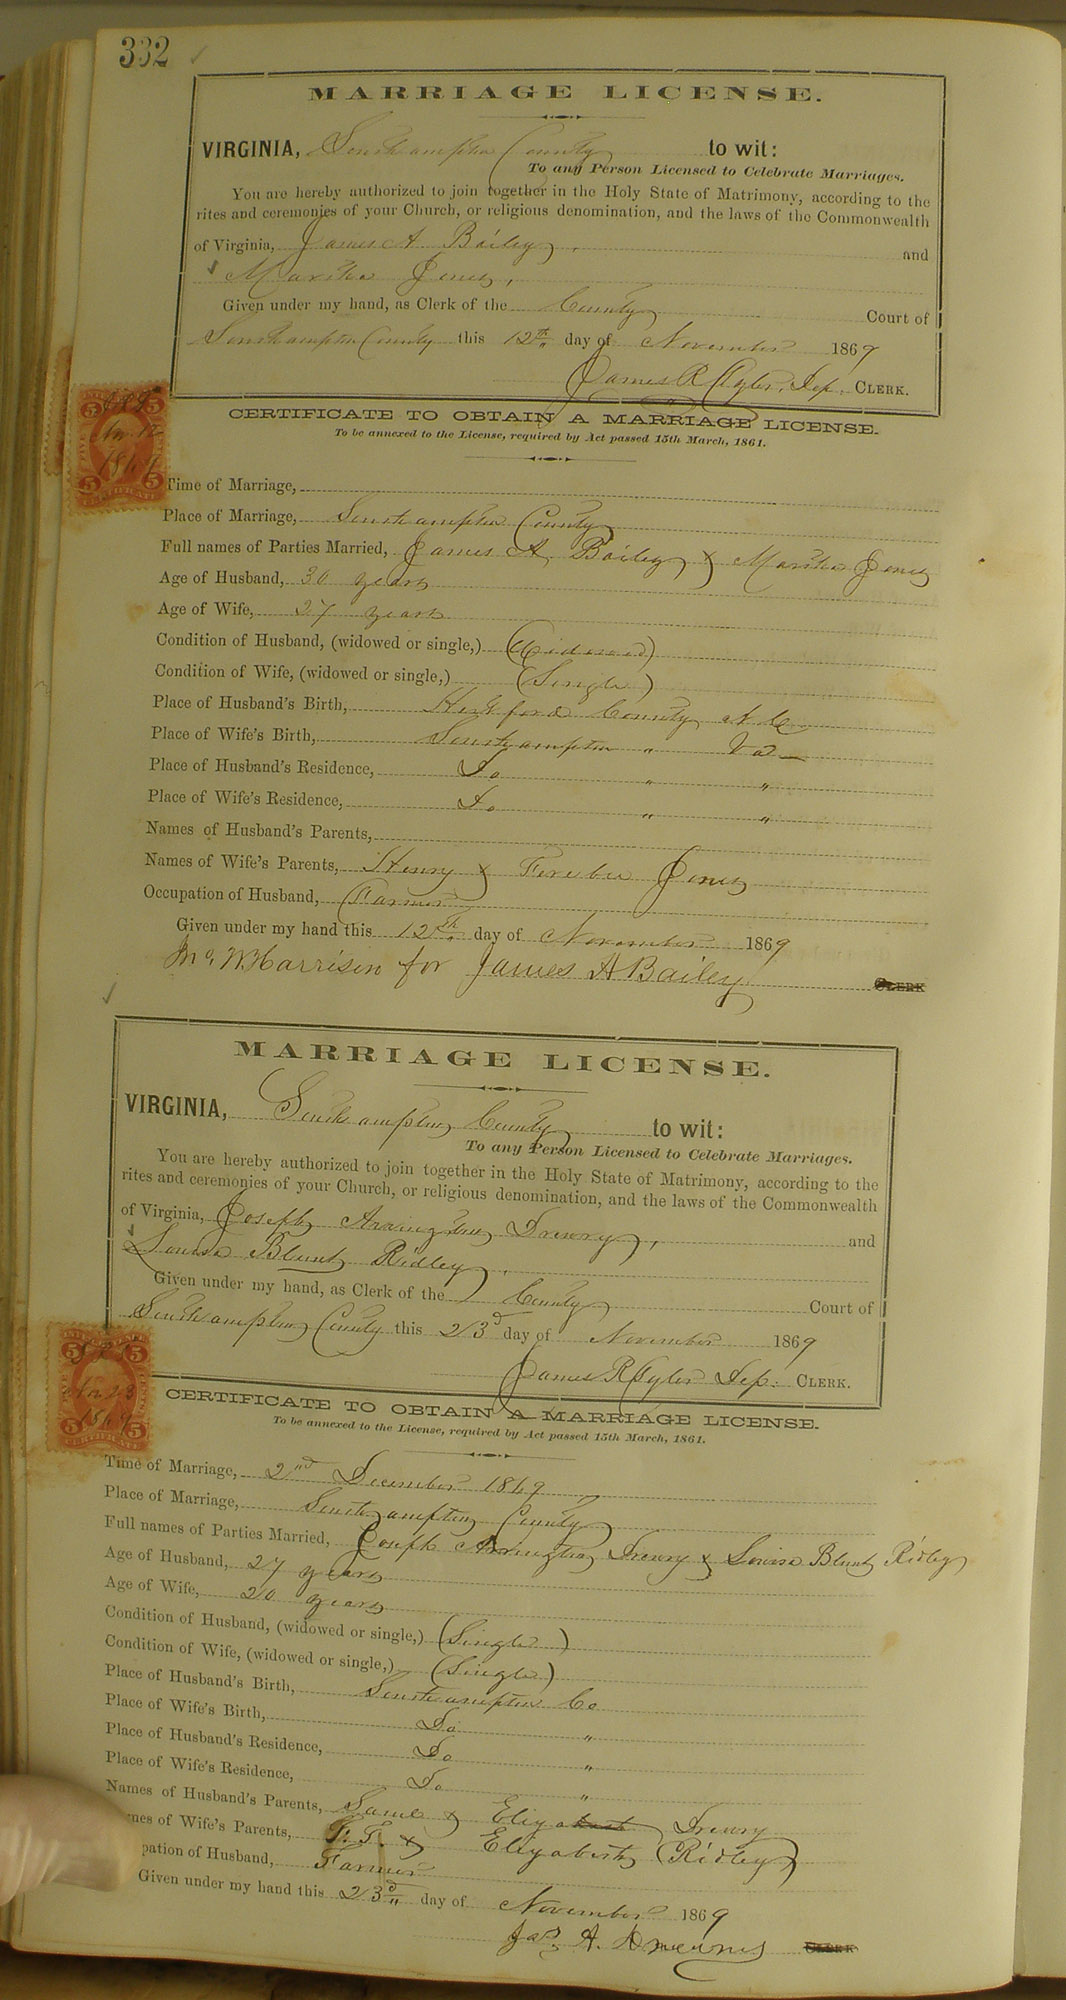 332
MARRIAGE LICENSE.
VIRGINIA, Southampton County to wit:
To any Person Licensed to Celebrate Marriages.
You are hereby authorized to join together in the Holy State of Matrimony, according to the
rites and ceremonies of your Church, or religious denomination, and the laws of the Commonwealth
of Virginia, James A Bailey, and
Martha Jones,
Given under my hand, as Clerk of the County Court of
Southampton County this 12th day of November 1869
James R Tyler, Dep. CLERK.
CERTIFICATE TO OBTAIN A MARRIAGE LICENSE.
To be annexed to the License, required by Act passed 15th March, 1861.
Nov. 12
1869
CERTIFICATE
Time of Marriage,
Place of Marriage, Southampton County
Full names of Parties Married, James A. Bailey & Martha Jones
Age of Husband, 30 years
Age of Wife, 27 years
Condition of Husband, (widowed or single,) (Widowed)
Condition of Wife, (widowed or single,) (Single)
Place of Husband's Birth, Hertford County N.C.
Place of Wife's Birth, Southampton " Va
Place of Husband's Residence, Do " "
Place of Wife's Residence, Do " "
Names of Husband's Parents,
Names of Wife's Parents, Henry & Fereba Jones
Occupation of Husband, Farmer
Given under my hand this 12th day of November 1869
Harrison for James A Bailey CLERK
MARRIAGE LICENSE.
VIRGINIA, Southampton County to wit:
To any Person Licensed to Celebrate Marriages.
You are hereby authorized to join together in the Holy State of Matrimony, according to the
rites and ceremonies of your Church, or religious denomination, and the laws of the Commonwealth
of Virginia, Joseph Arrington Drewry, and
Louisa Blunt Ridley.
Given under my hand, as Clerk of the County Court of
Southampton County this 23d day of November 1869
James R Tyler Dep. CLERK.
CERTIFICATE TO OBTAIN A MARRIAGE LICENSE.
To be annexed to the License, required by Act passed 15th March, 1861.
Nov. 23
1869
CERTIFICATE
Time of Marriage, 2nd December 1869
Place of Marriage, Southampton County
Full names of Parties Married, Joseph Arrington Drewry & Louisa Blunt Ridley
Age of Husband, 27 years
Age of Wife, 20 years
Condition of Husband, (widowed or single,) (Single)
Condition of Wife, (widowed or single,) (Single)
Place of Husband's Birth, Southampton Co
Place of Wife's Birth, Do "
Place of Husband's Residence, Do "
Place of Wife's Residence, Do "
Names of Husband's Parents, Saml & Eliza Drewry
mes of Wife's Parents, & Elizabeth Ridley
pation of Husband, Farmer
Given under my hand this 23d day of November 1869
Jas. A. CLERK